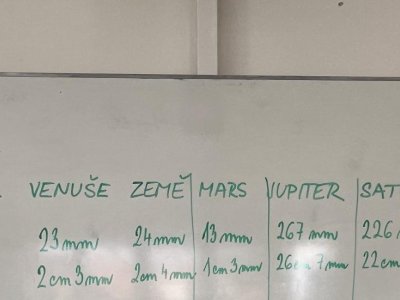 VENUŠE ZEMĚ MARS JUPITER SAT
23mm 24mm 13mm 267mm 226
2cm 3mm 2cm 4mm 1cm 3mm 26cm 7mm 22cm